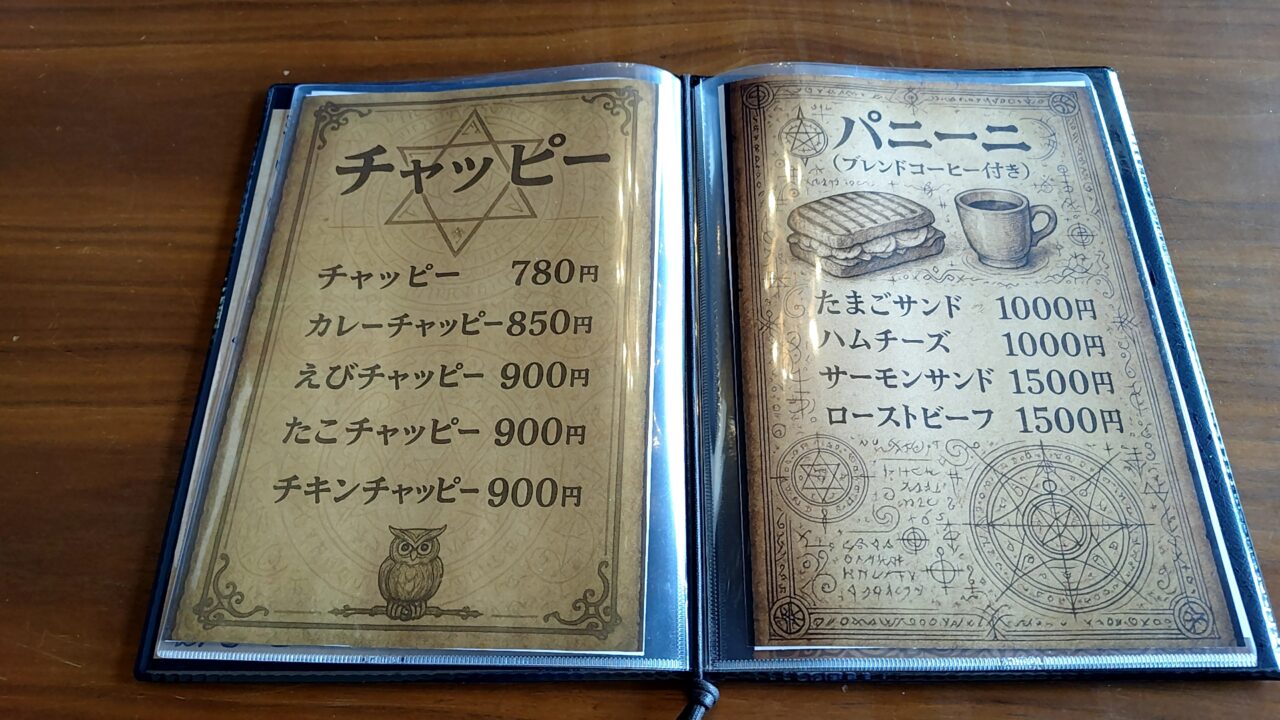 チャッピー
チャッピー 780円
カレーチャッピー 850円
えびチャッピー 900円
たこチャッピー 900円
チキンチャッピー 900円
パニーニ
(ブレンドコーヒー付き)
たまごサンド 1000円
ハムチーズ 1000円
サーモンサンド 1500円
ローストビーフ 1500円